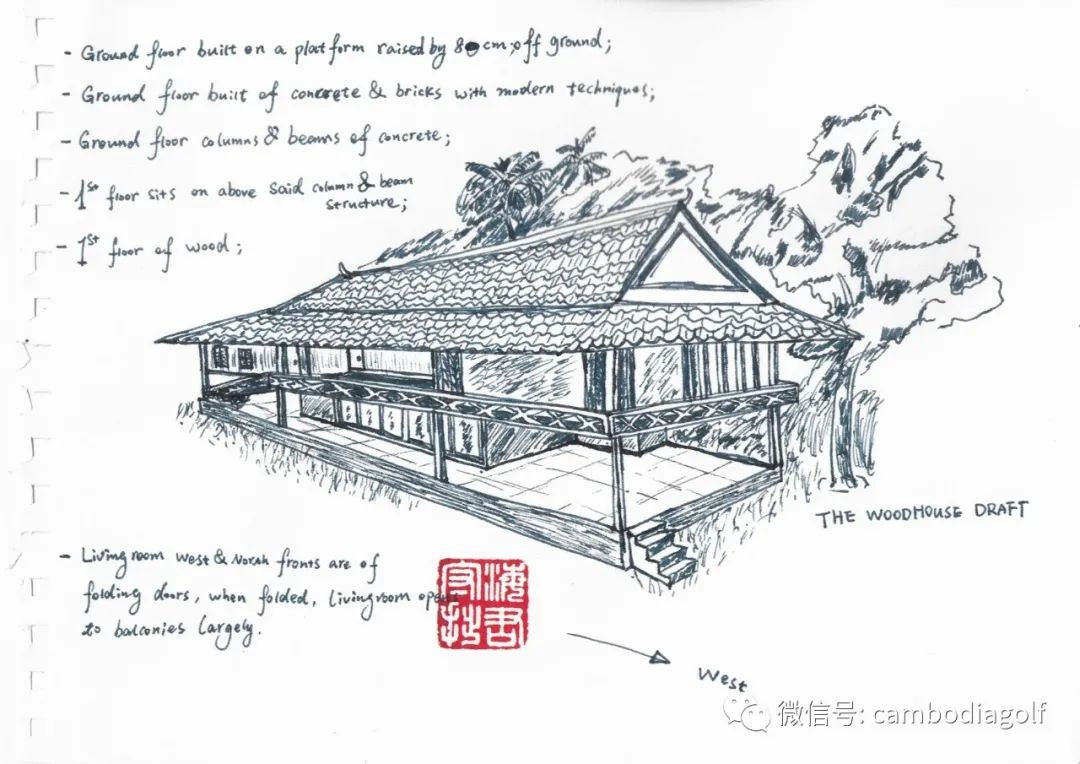 - Ground floor built on a platform raised by 80 cm off ground;
- Ground floor built of concrete & bricks with modern techniques;
- Ground floor columns & beams of concrete;
- 1st floor sits on above said column & beam
structure;
- 1st floor of wood;
THE WOODHOUSE DRAFT
- Livingroom West & North fronts are of
folding doors, when folded, livingroom opens
to balconies largely.
West
微信号: cambodiagolf